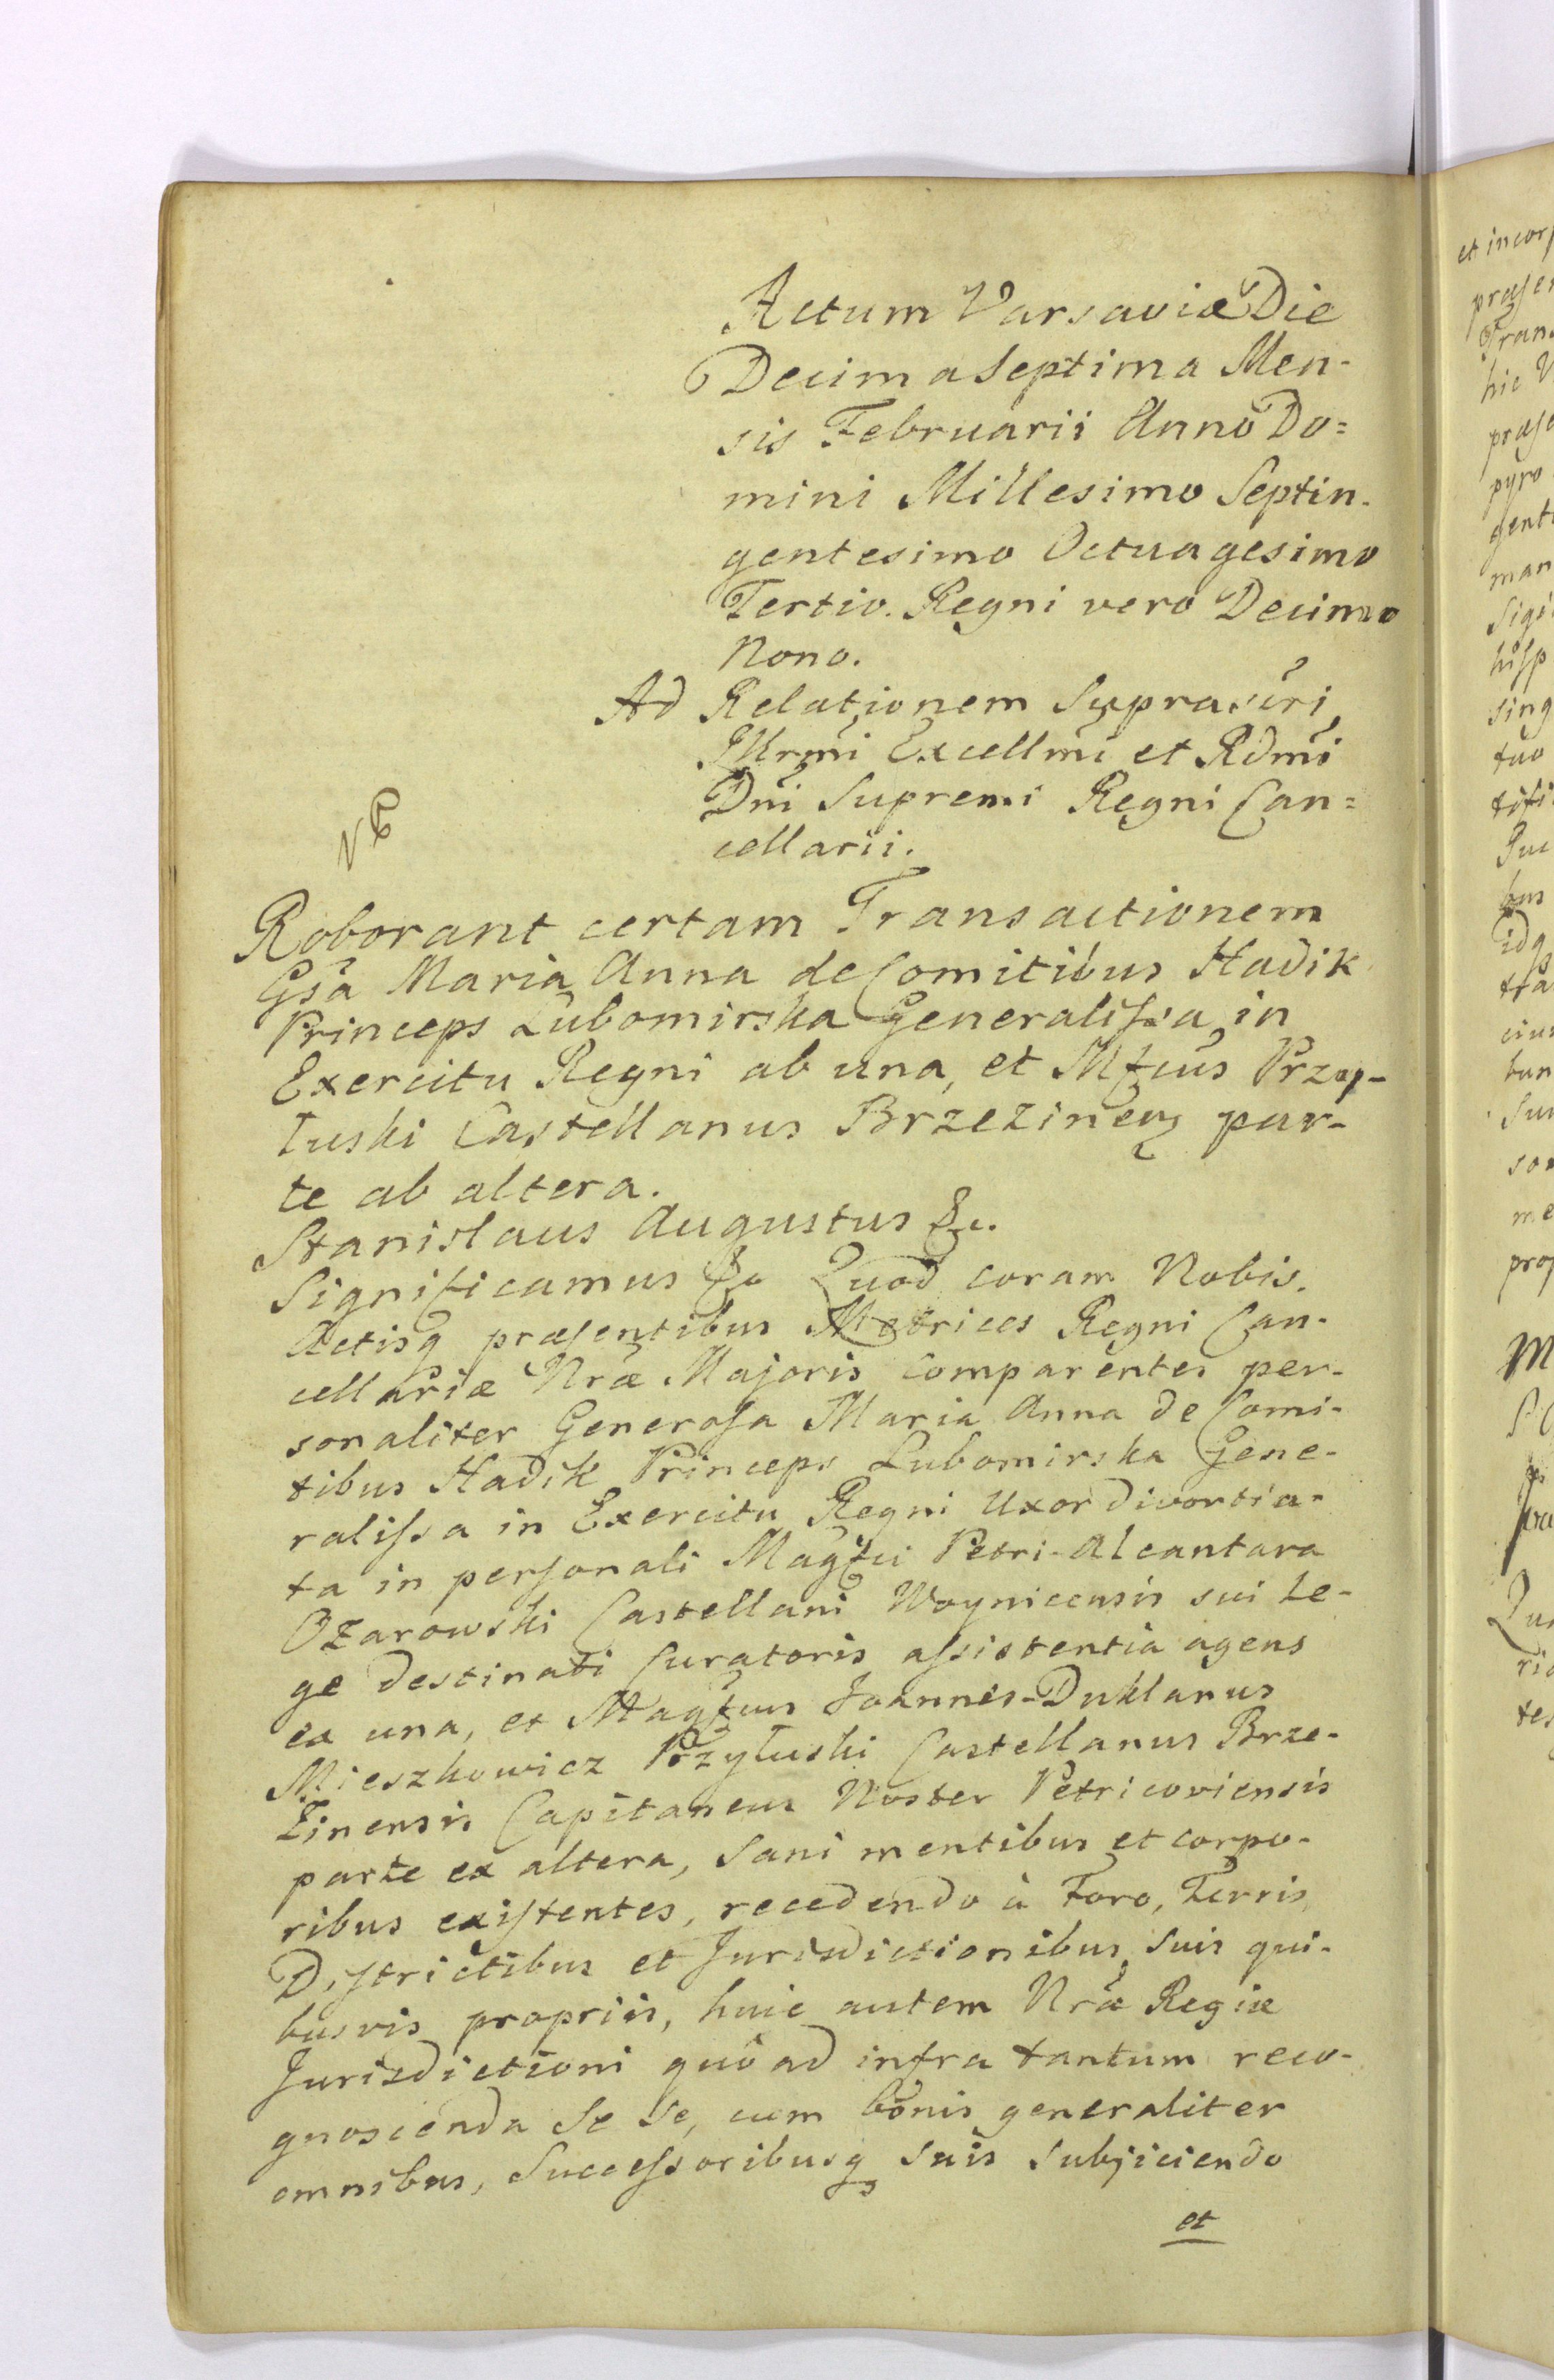 Actum Varsaviæ Die
Decima Septima Men-
sis Februarii Anno Do=
mini Millesimo Septin-
gentesimo Octuagesimo
Tertio. Regni vero Decimo
Nono.
Ad Relationem Suprascri
Illrmi Excellmi et Rdmi
Dni Supremi Regni Can=
cellarii.
Roborant certam Transactionem
Gsa Maria Anna de Comitibus Hadik
Princeps Lubomirska Generalissa in
Exercitu Regni ab una, et Mfcus Przy-
łuski Castellanus Brzezinen par-
te ab altera.
Stanislaus Augustus &c.
Significamus &c Quod coram Nobis.
Actisq præsentibus Metrices Regni Can-
cellariæ Nræ Majoris comparentes per-
sonaliter Generosa Maria Anna de Comi-
tibus Hadik Princeps Lubomirska Gene-
ralissa in Exercitu Regni Uxor divortia-
ta in personali Magfci Petri-Alcantara
Ożarowski Castellani Woynicensis sui le-
ge destinati Curatoris assistentia agens
ex una, et Magfcus Joannes-Duklanus
Mieszkowicz Przyłuski Castellanus Brze-
zinensis Capitaneus Noster Petricoviensis
parte ex altera, Sani mentibus et corpo-
ribus existentes, recedendo à Foro, Terris
Districtibus et Jurisdictionibus suis qui-
busvis propriis, huic autem Nræ Regiæ
Jurisdictioni quò ad infra tantum reco-
gnoscenda Se Se, cum bonis generaliter
omnibus, Successoribusq suis subjiciendo
et